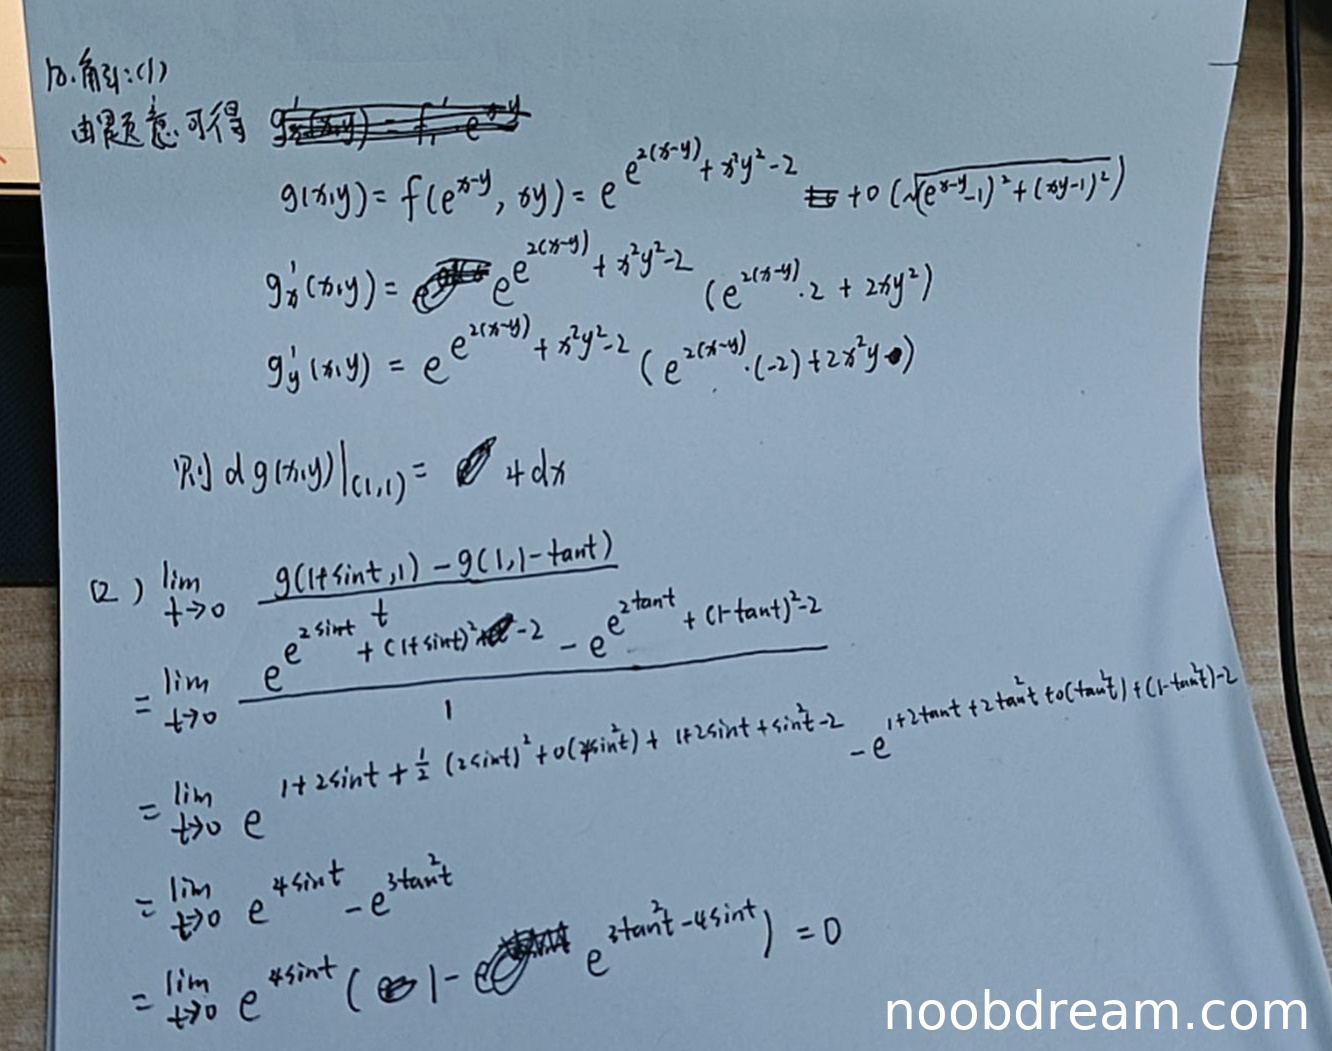 10.解:(1)
由题意可得
g(x,y) = f(e^{x-y}, xy) = e^{e^{2(x-y)}+x²y²-2} + o(√((e^{x-y}-1)²+(xy-1)²))
g'_x(x,y) = e^{e^{2(x-y)}+x²y²-2} (e^{2(x-y)}·2 + 2xy²)
g'_y(x,y) = e^{e^{2(x-y)}+x²y²-2} (e^{2(x-y)}·(-2)+2x²y)
则 dg(x,y)|_{(1,1)} = 4dx
(2) lim_{t→0} \frac{g(1+sint,1) - g(1,1-tant)}{t}
= lim_{t→0} \frac{e^{e^{2sint}+(1+sint)²-2} - e^{e^{2tant}+(1-tant)²-2}}{1}
= lim_{t→0} e^{1+2sint+\frac{1}{2}(2sint)²+o(4sin²t)+1+2sint+sin²t-2} - e^{1+2tant+2tan²t+o(tan²t)+(1-tan²t)-2}
= lim_{t→0} e^{4sint} - e^{3tan²t}
= lim_{t→0} e^{4sint} (1 - e^{3tan²t-4sint}) = 0
noobdream.com